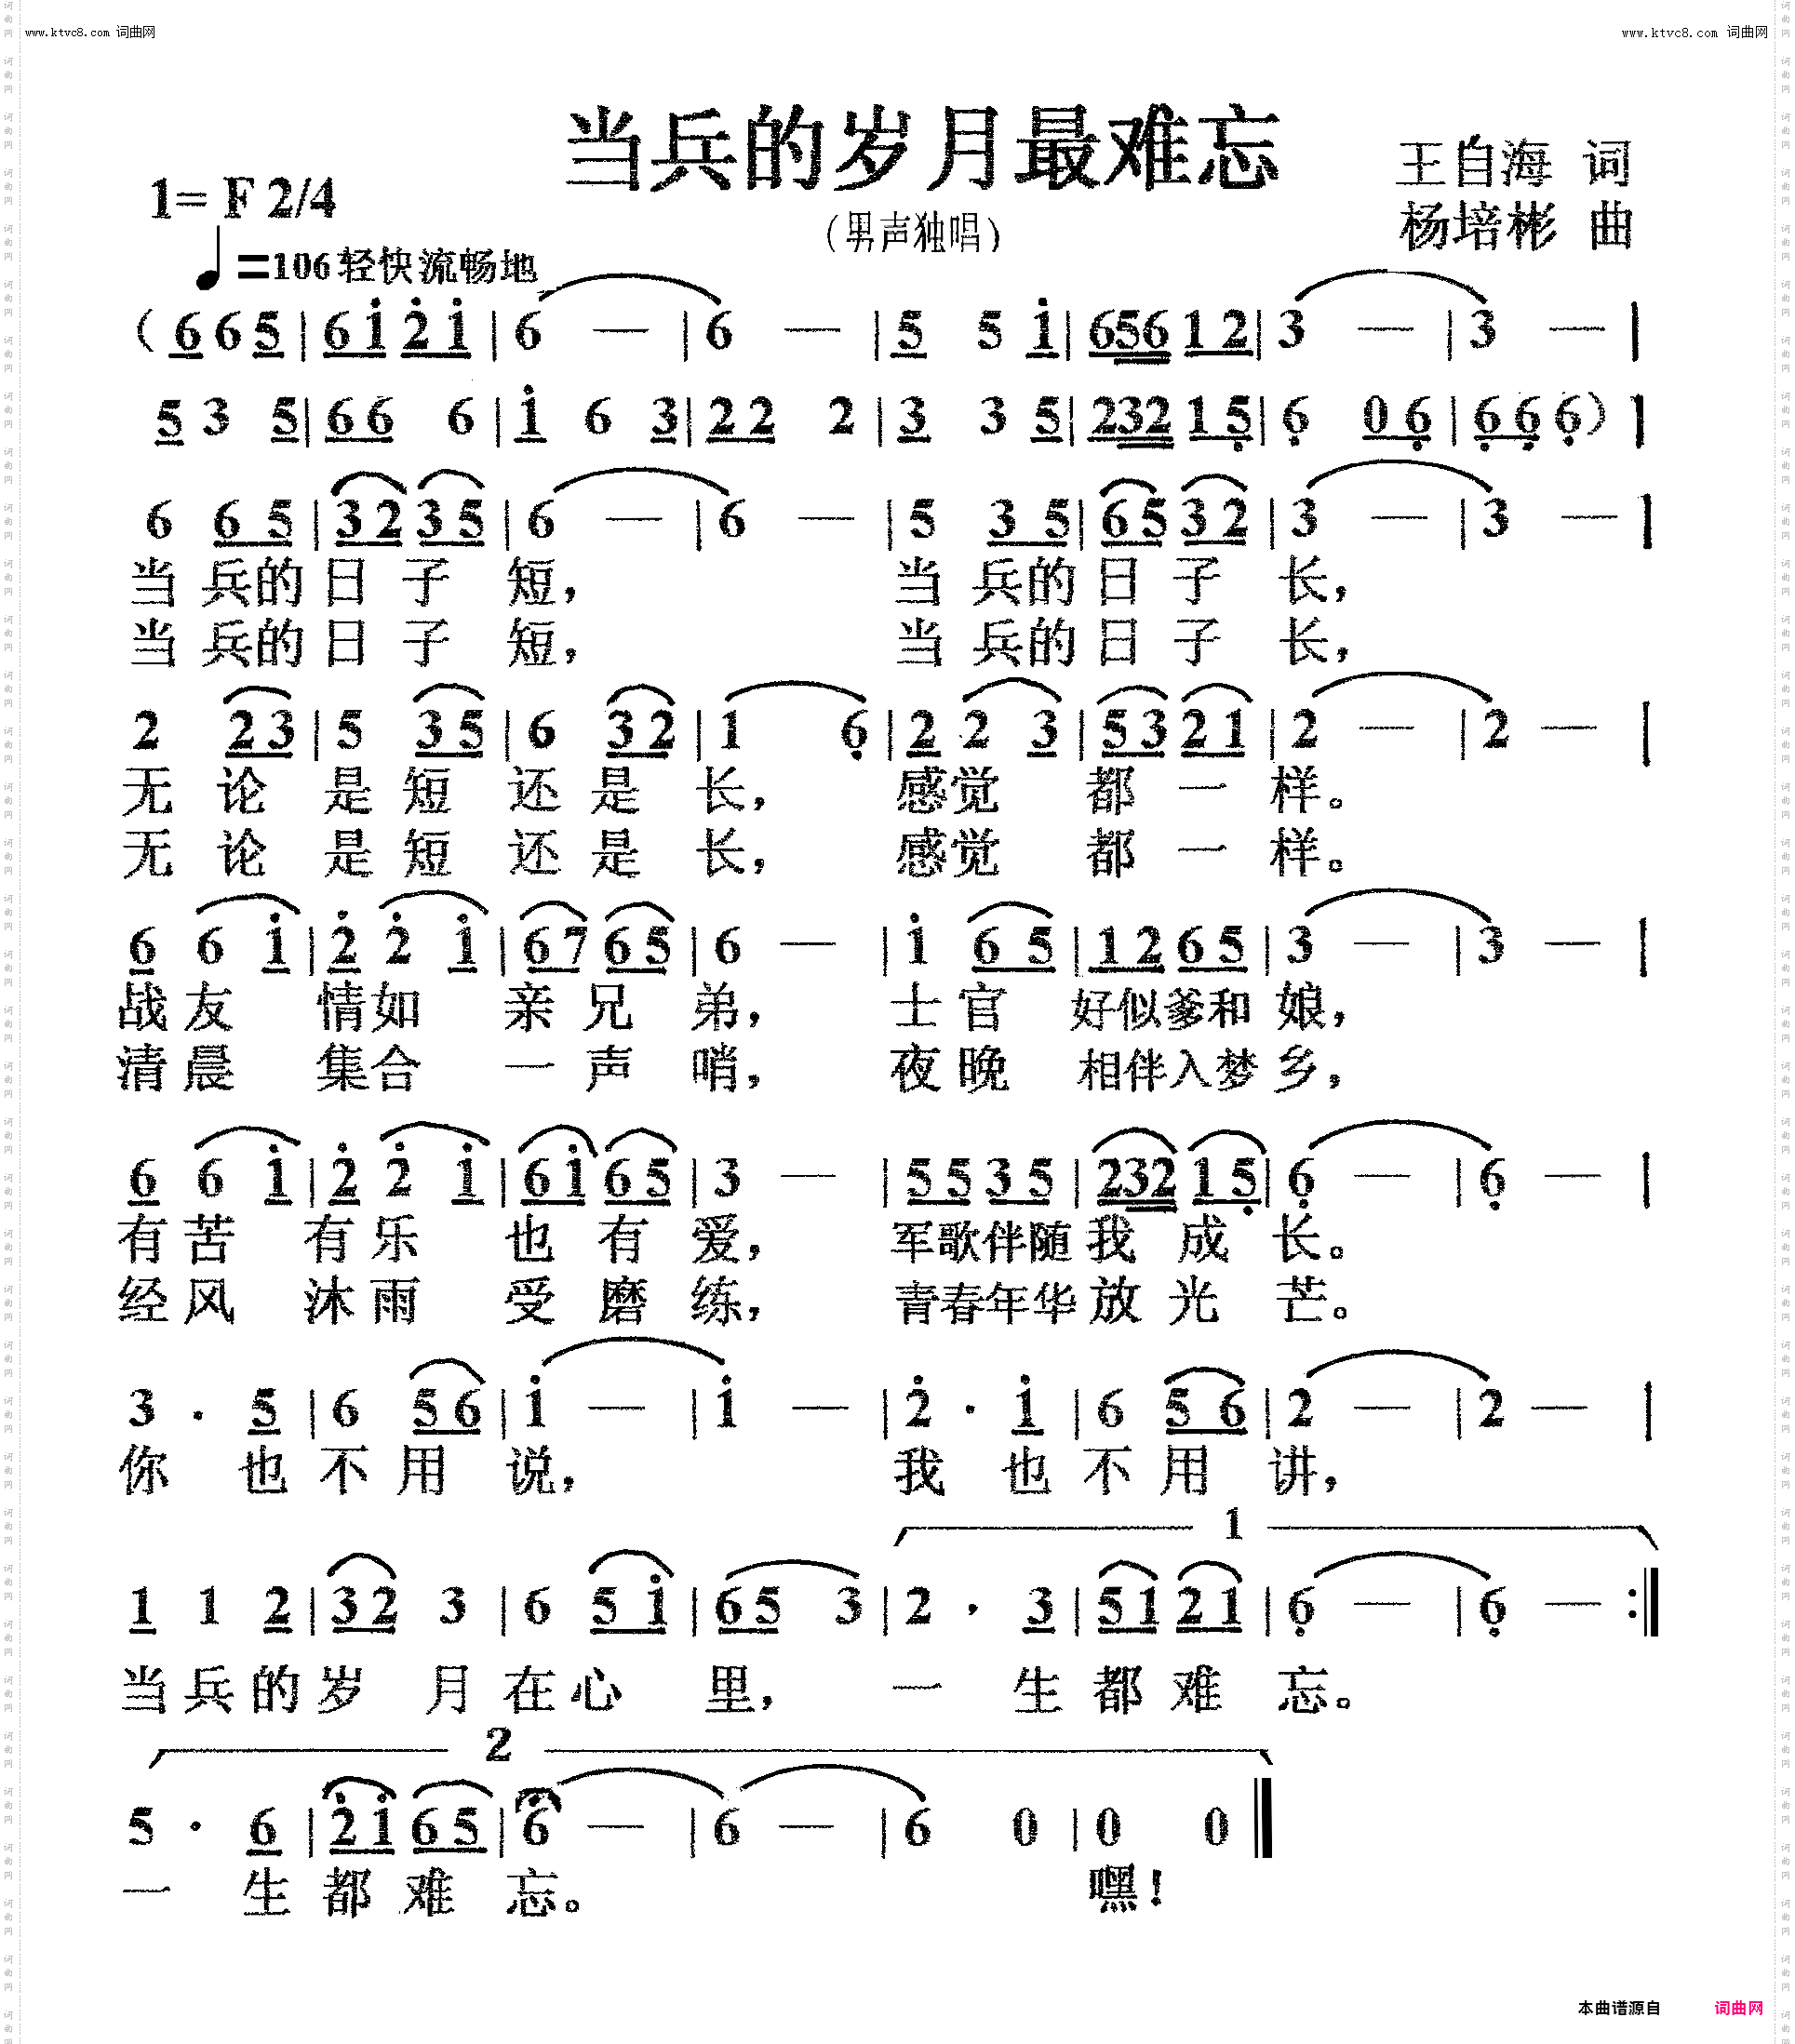 www.ktvc8.com 词曲网
www.ktvc8.com 词曲网
当兵的岁月最难忘
王自海 词
1= F 2/4
(男声独唱)
杨培彬 曲
♩=106 轻快流畅地
( 6 6 5 | 6 i 2̇ i | 6 — | 6 — | 5 5 i | 656 1 2 | 3 — | 3 — |
5 3 5 | 6 6 6 | i 6 3 | 2 2 2 | 3 3 5 | 232 1 5̣ | 6̣ 0 6̣ | 6̣ 6̣ 6̣ ) |
6 6 5 | 3 2 3 5 | 6 — | 6 — | 5 3 5 | 6 5 3 2 | 3 — | 3 — |
当 兵的 日 子 短, 当 兵的 日 子 长,
当 兵的 日 子 短, 当 兵的 日 子 长,
2 2 3 | 5 3 5 | 6 3 2 | 1 6̣ | 2 2 3 | 5 3 2 1 | 2 — | 2 — |
无 论 是 短 还 是 长, 感觉 都 一 样。
无 论 是 短 还 是 长, 感觉 都 一 样。
6 6 i | 2̇ 2̇ i | 6 7 6 5 | 6 — | i 6 5 | 1 2 6 5 | 3 — | 3 — |
战 友 情如 亲 兄 弟, 士 官 好似爹和 娘,
清 晨 集合 一 声 哨, 夜 晚 相伴入梦 乡,
6 6 i | 2̇ 2̇ i | 6 i 6 5 | 3 — | 5 5 3 5 | 232 1 5̣ | 6̣ — | 6̣ — |
有 苦 有 乐 也 有 爱, 军歌伴随 我 成 长。
经 风 沐 雨 受 磨 练, 青春年华 放 光 芒。
3 · 5 | 6 5 6 | i — | i — | 2̇ · i | 6 5 6 | 2 — | 2 — |
你 也 不 用 说, 我 也 不 用 讲,
1
1 1 2 | 3 2 3 | 6 5 i | 6 5 3 | 2 · 3 | 5 1 2 1 | 6̣ — | 6̣ — :|
当 兵 的 岁 月 在 心 里, 一 生 都 难 忘。
2
5 · 6 | 2̇ i 6 5 | 6 — | 6 — | 6 0 | 0 0 ‖
一 生 都 难 忘。 嘿!
本曲谱源自 词曲网